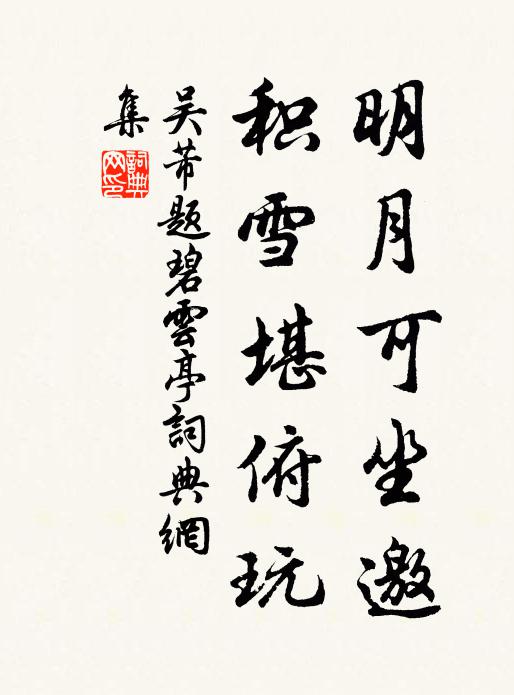 明月可坐邀
积雪堪俯玩
吴芾题碧雲亭詞典網
集
詞典网印